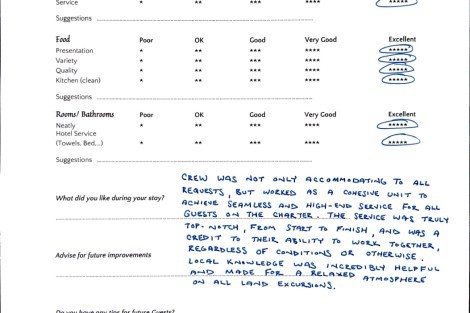 Service * ** *** **** *****
Suggestions
Food Poor OK Good Very Good Excellent
Presentation * ** *** **** *****
Variety * ** *** **** *****
Quality * ** *** **** *****
Kitchen (clean) * ** *** **** *****
Suggestions
Rooms/ Bathrooms Poor OK Good Very Good Excellent
Neatly * ** *** **** *****
Hotel Service
(Towels, Bed...) * ** *** **** *****
Suggestions
What did you like during your stay?
CREW WAS NOT ONLY ACCOMMODATING TO ALL
REQUESTS, BUT WORKED AS A COHESIVE UNIT TO
ACHIEVE SEAMLESS AND HIGH-END SERVICE FOR ALL
GUESTS ON THE CHARTER. THE SERVICE WAS TRULY
TOP-NOTCH, FROM START TO FINISH, AND WAS A
CREDIT TO THEIR ABILITY TO WORK TOGETHER,
REGARDLESS OF CONDITIONS OR OTHERWISE.
LOCAL KNOWLEDGE WAS INCREDIBLY HELPFUL
AND MADE FOR A RELAXED ATMOSPHERE
ON ALL LAND EXCURSIONS.
Advise for future improvements
Do you have any tips for future Guests?